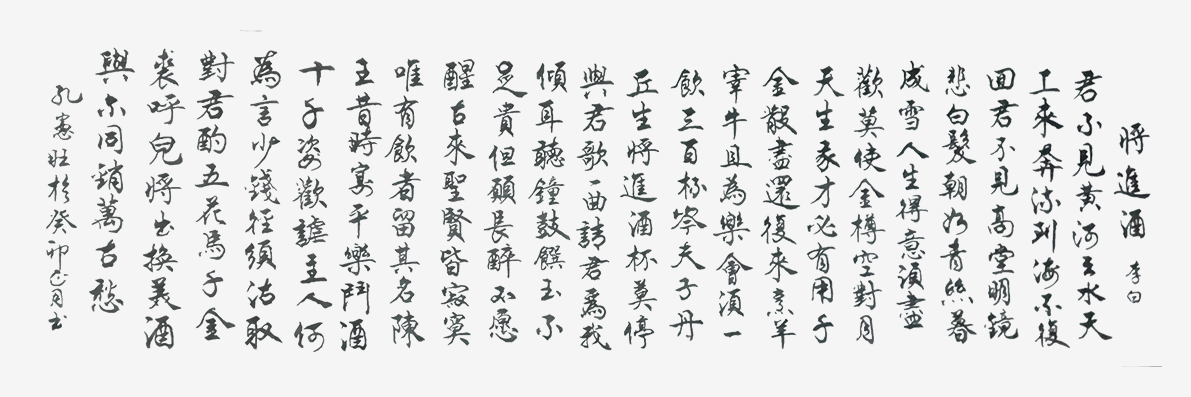 將進酒 李白
君不見黃河之水天
上來奔流到海不復
回君不見高堂明鏡
悲白髮朝如青絲暮
成雪人生得意須盡
歡莫使金樽空對月
天生我才必有用千
金散盡還復來烹羊
宰牛且為樂會須一
飲三百杯岑夫子丹
丘生將進酒杯莫停
與君歌一曲請君為我
傾耳聽鐘鼓饌玉不
足貴但願長醉不願
醒古來聖賢皆寂寞
唯有飲者留其名陳
王昔時宴平樂鬥酒
十千恣歡謔主人何
為言少錢徑須沽取
對君酌五花馬千金
裘呼兒將出換美酒
與尔同銷萬古愁
孔憲旺於癸卯正月書